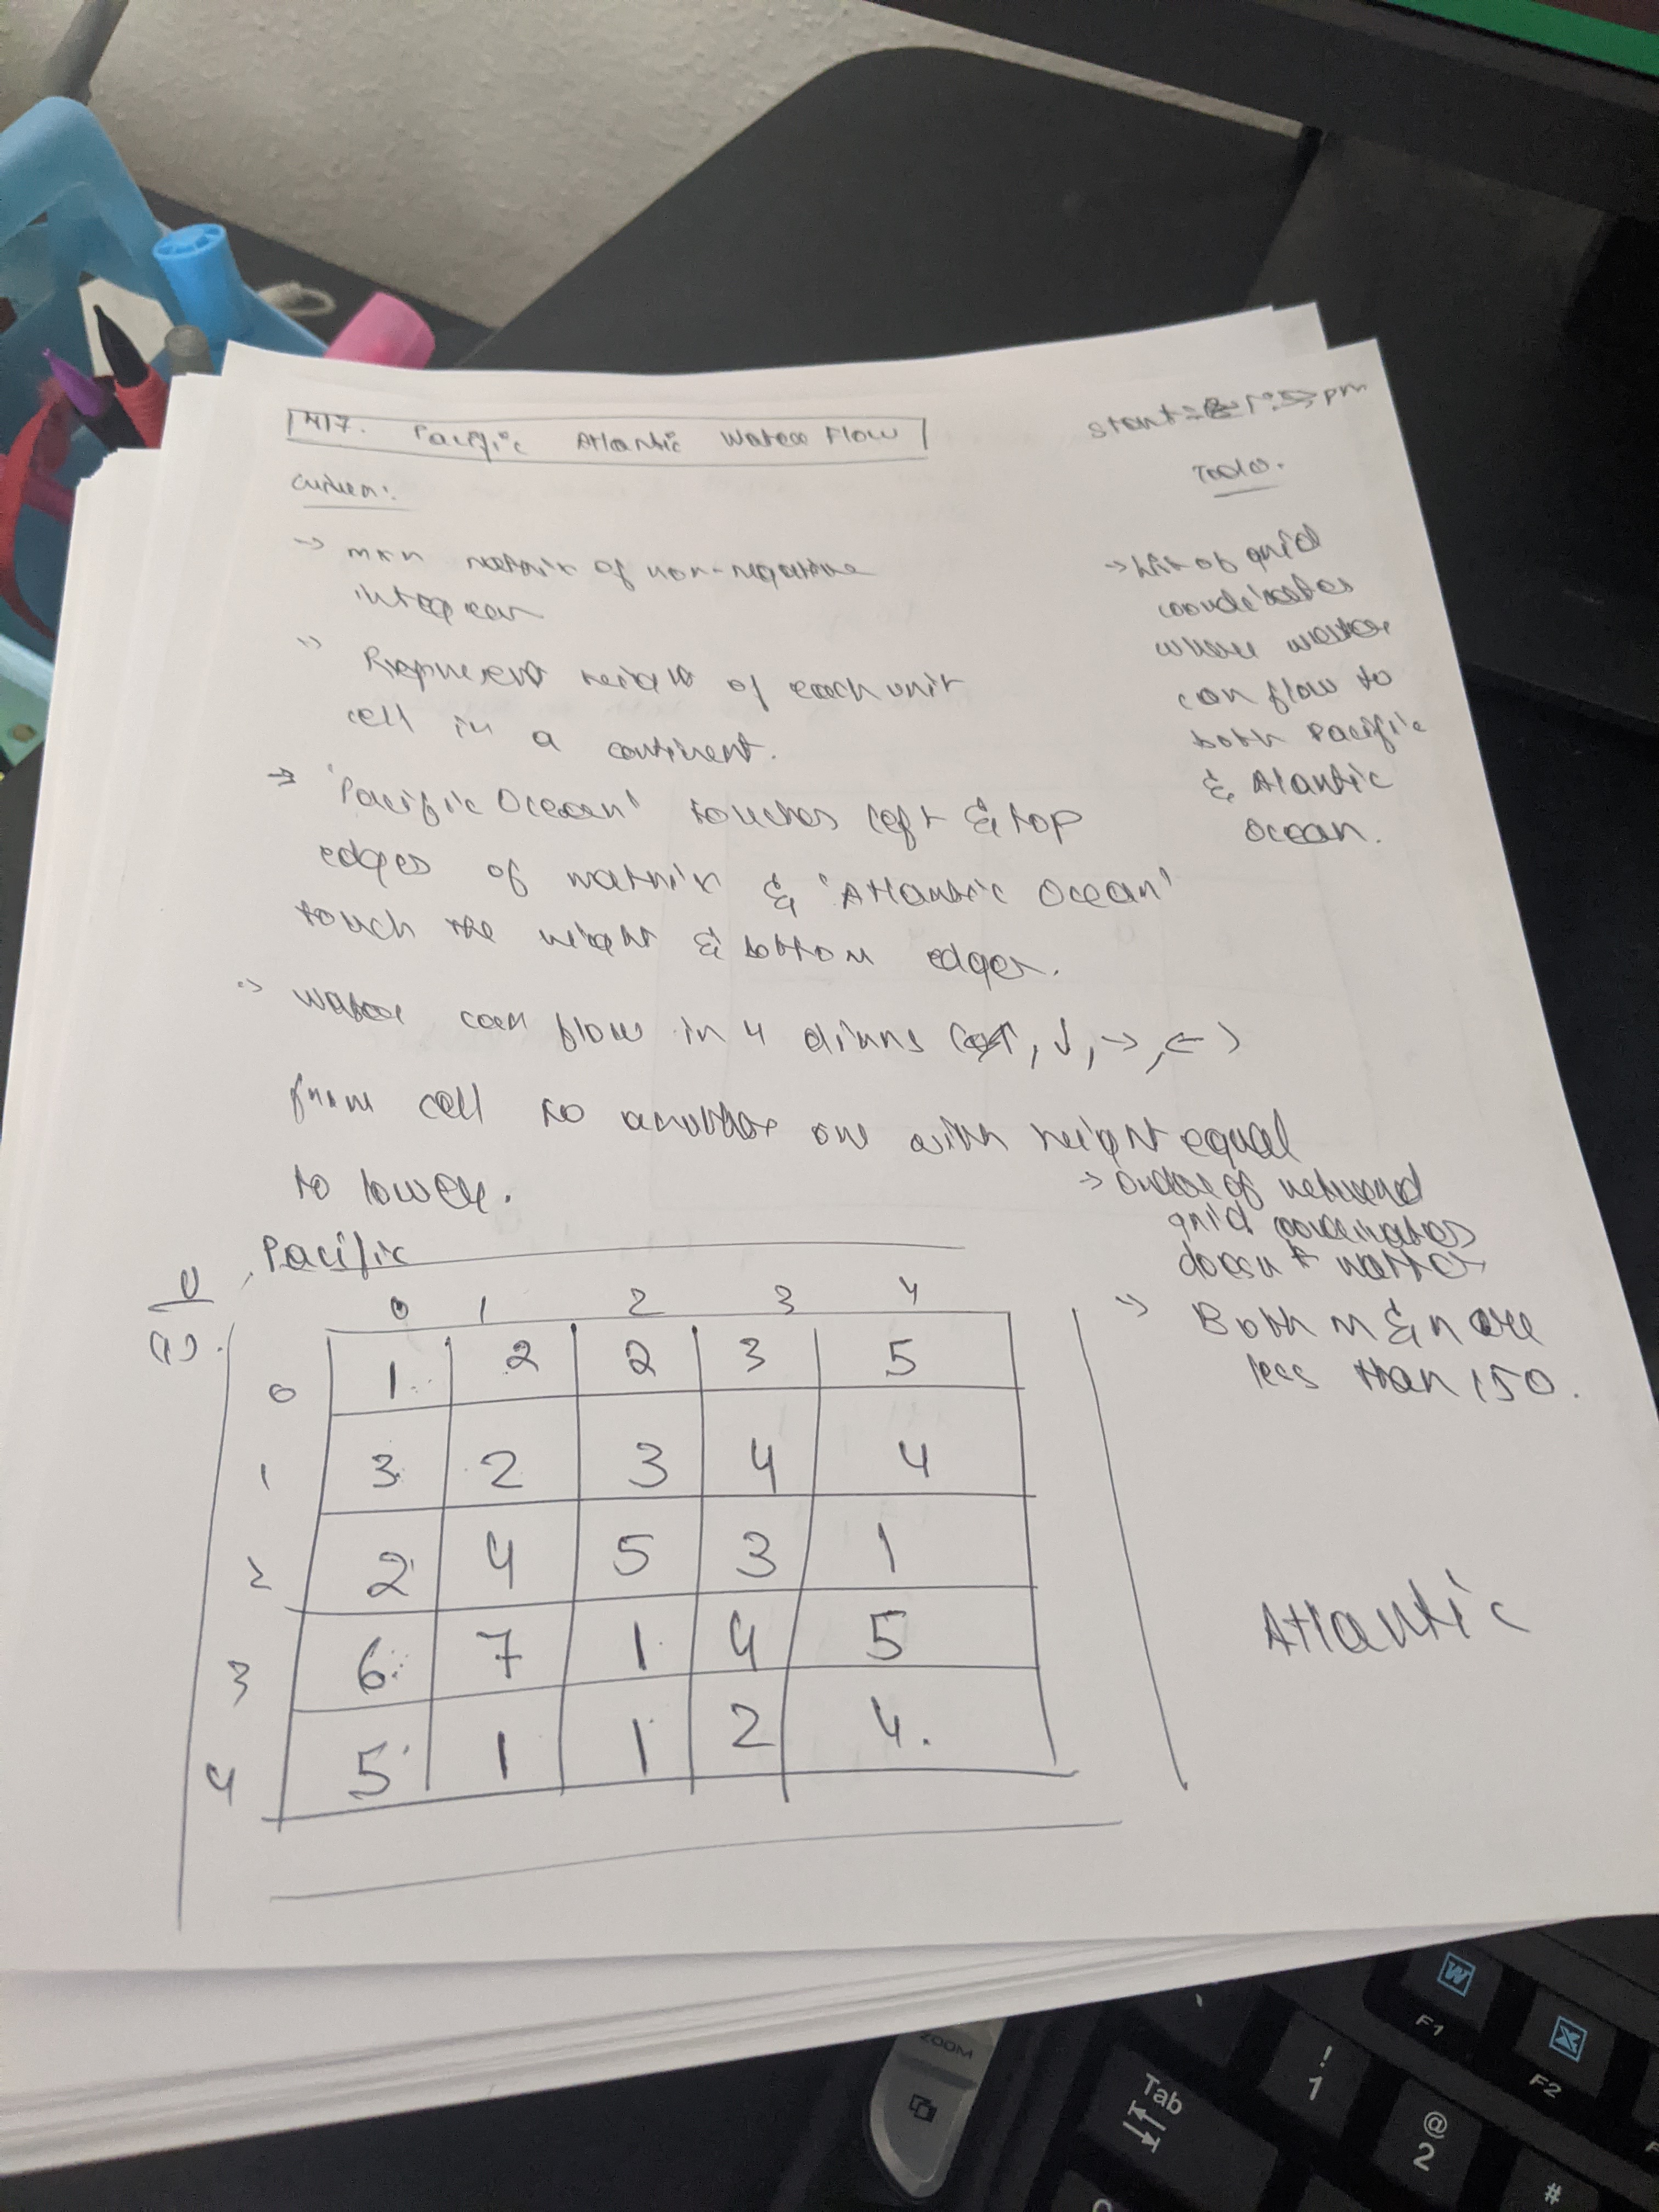 417. Pacific Atlantic Water Flow
start = 1:55 pm
Given:
Todo.
→ mxn matrix of non-negative
integers
→ Represent height of each unit
cell in a continent.
→ 'Pacific Ocean' touches left & top
edges of matrix & 'Atlantic Ocean'
touch the right & bottom edges.
→ Water can flow in 4 dirns (↑, ↓, →, ←)
from cell to another one with height equal
to lower.
→ List of grid
coordinates
where water
can flow to
both Pacific
& Alantic
Ocean.
→ Order of returned
grid coordinates
doesn't matter
→ Both m & n are
less than 150.
Pacific
0 1 2 3 4
0 1 2 2 3 5
1 3 2 3 4 4
2 2 4 5 3 1
3 6 7 1 4 5
4 5 1 1 2 4.
Atlantic
ZOOM
Tab
F1
F2
! 1
@ 2
#
W
X